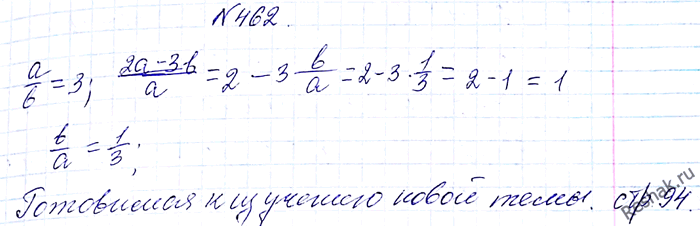 №462.
a/b = 3; (2a - 3b)/a = 2 - 3 · b/a = 2 - 3 · 1/3 = 2 - 1 = 1
b/a = 1/3;
Готовимся к изучению новой темы. стр 94.
Reshak.ru